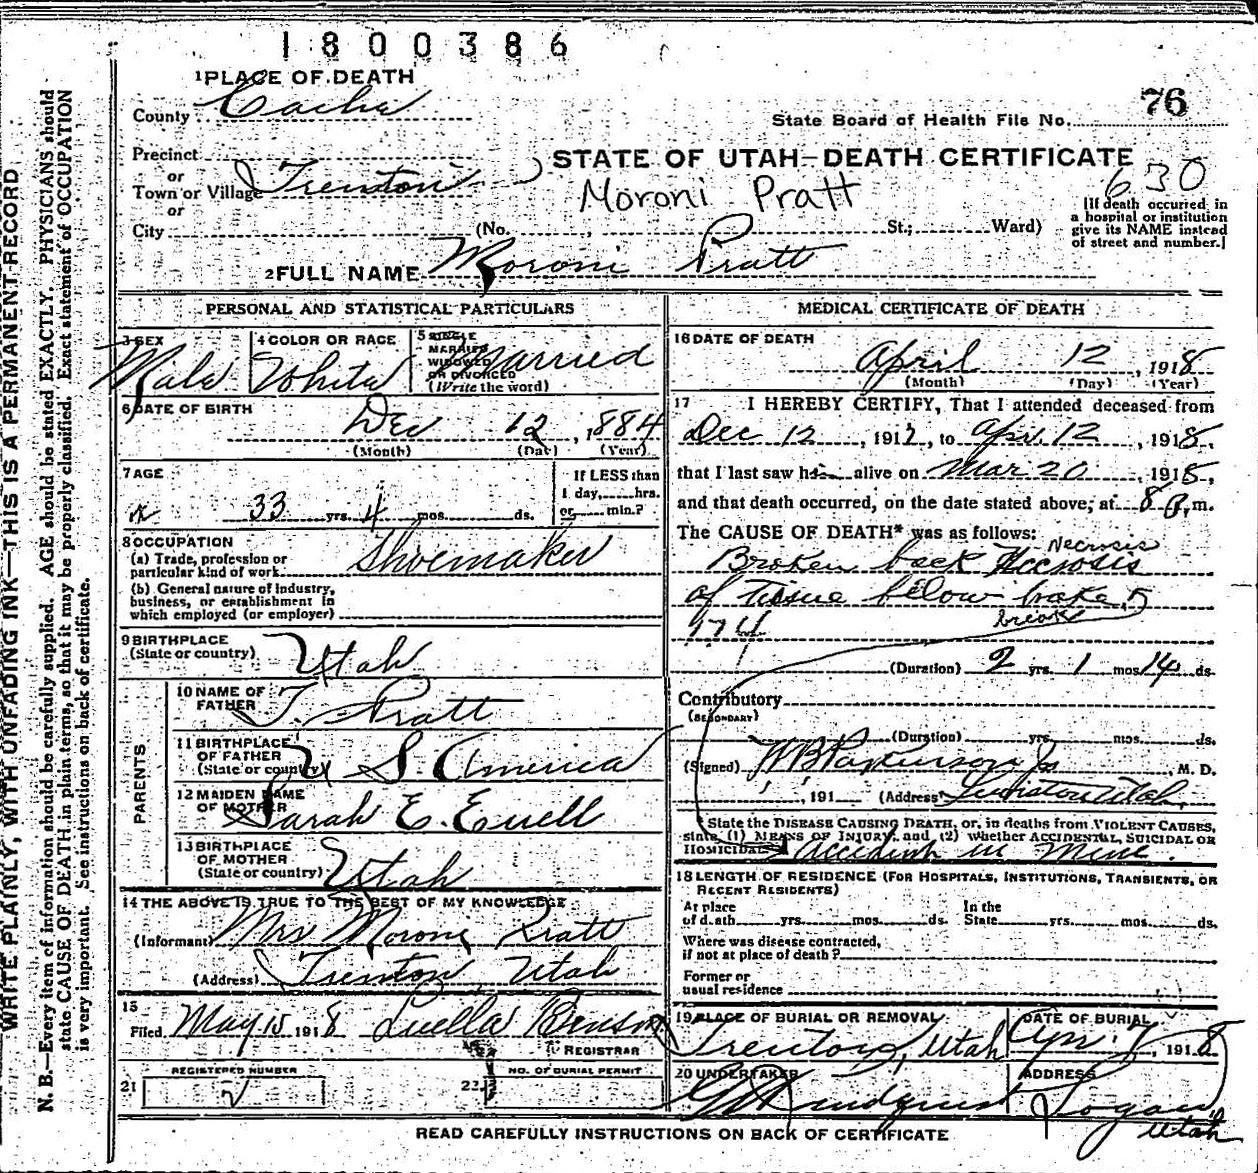 1800386
1 PLACE OF DEATH
County Cache
76
State Board of Health File No.
Precinct
or
Town or Village Trenton
or
City
STATE OF UTAH—DEATH CERTIFICATE
Moroni Pratt
630
(No. St.; Ward)
[If death occurred in
a hospital or institution
give its NAME instead
of street and number.]
2 FULL NAME Moroni Pratt
PERSONAL AND STATISTICAL PARTICULARS
3 SEX
Male
4 COLOR OR RACE
White
5 SINGLE
MARRIED
WIDOWED
OR DIVORCED
(Write the word)
Married
6 DATE OF BIRTH
Dec 12, 1884
(Month) (Day) (Year)
7 AGE
33 yrs. 4 mos. ds.
If LESS than
1 day, hrs.
or min.?
8 OCCUPATION
(a) Trade, profession or
particular kind of work Shoemaker
(b) General nature of industry,
business, or establishment in
which employed (or employer)
9 BIRTHPLACE
(State or country) Utah
PARENTS
10 NAME OF
FATHER T. Pratt
11 BIRTHPLACE
OF FATHER
(State or country) U S America
12 MAIDEN NAME
OF MOTHER Sarah E. Ewell
13 BIRTHPLACE
OF MOTHER
(State or country) Utah
14 THE ABOVE IS TRUE TO THE BEST OF MY KNOWLEDGE
(Informant) Mrs Moroni Pratt
(Address) Trenton, Utah
15
Filed May 15 1918 Luella Benson
REGISTRAR
21 REGISTERED NUMBER
22 NO. OF BURIAL PERMIT
MEDICAL CERTIFICATE OF DEATH
16 DATE OF DEATH
April 12, 1918
(Month) (Day) (Year)
17 I HEREBY CERTIFY, That I attended deceased from
Dec 12, 1917, to Apr. 12, 1918,
that I last saw him alive on Mar 20, 1918,
and that death occurred, on the date stated above, at 8 a, m.
The CAUSE OF DEATH* was as follows:
Necrosis
Broken back Necrosis
of tissue below brake
break
174
(Duration) 2 yrs. 1 mos. 14 ds.
Contributory
(SECONDARY)
(Duration) yrs. mos. ds.
(Signed) W B Parkinson Jr, M. D.
, 191 (Address) Lewiston Utah.
State the DISEASE CAUSING DEATH, or, in deaths from VIOLENT CAUSES,
state (1) MEANS OF INJURY, and (2) whether ACCIDENTAL, SUICIDAL OR
HOMICIDAL Accident in Mine.
18 LENGTH OF RESIDENCE (FOR HOSPITALS, INSTITUTIONS, TRANSIENTS, OR
RECENT RESIDENTS)
At place In the
of death yrs. mos. ds. State yrs. mos. ds.
Where was disease contracted,
if not at place of death?
Former or
usual residence
19 PLACE OF BURIAL OR REMOVAL
Trenton, Utah
DATE OF BURIAL
Apr. 1918
20 UNDERTAKER
ADDRESS
Logan,
Utah
READ CAREFULLY INSTRUCTIONS ON BACK OF CERTIFICATE
WRITE PLAINLY, WITH UNFADING INK—THIS IS A PERMANENT RECORD
N. B.—Every item of information should be carefully supplied. AGE should be stated EXACTLY. PHYSICIANS should
state CAUSE OF DEATH in plain terms, so that it may be properly classified. Exact statement of OCCUPATION
is very important. See instructions on back of certificate.